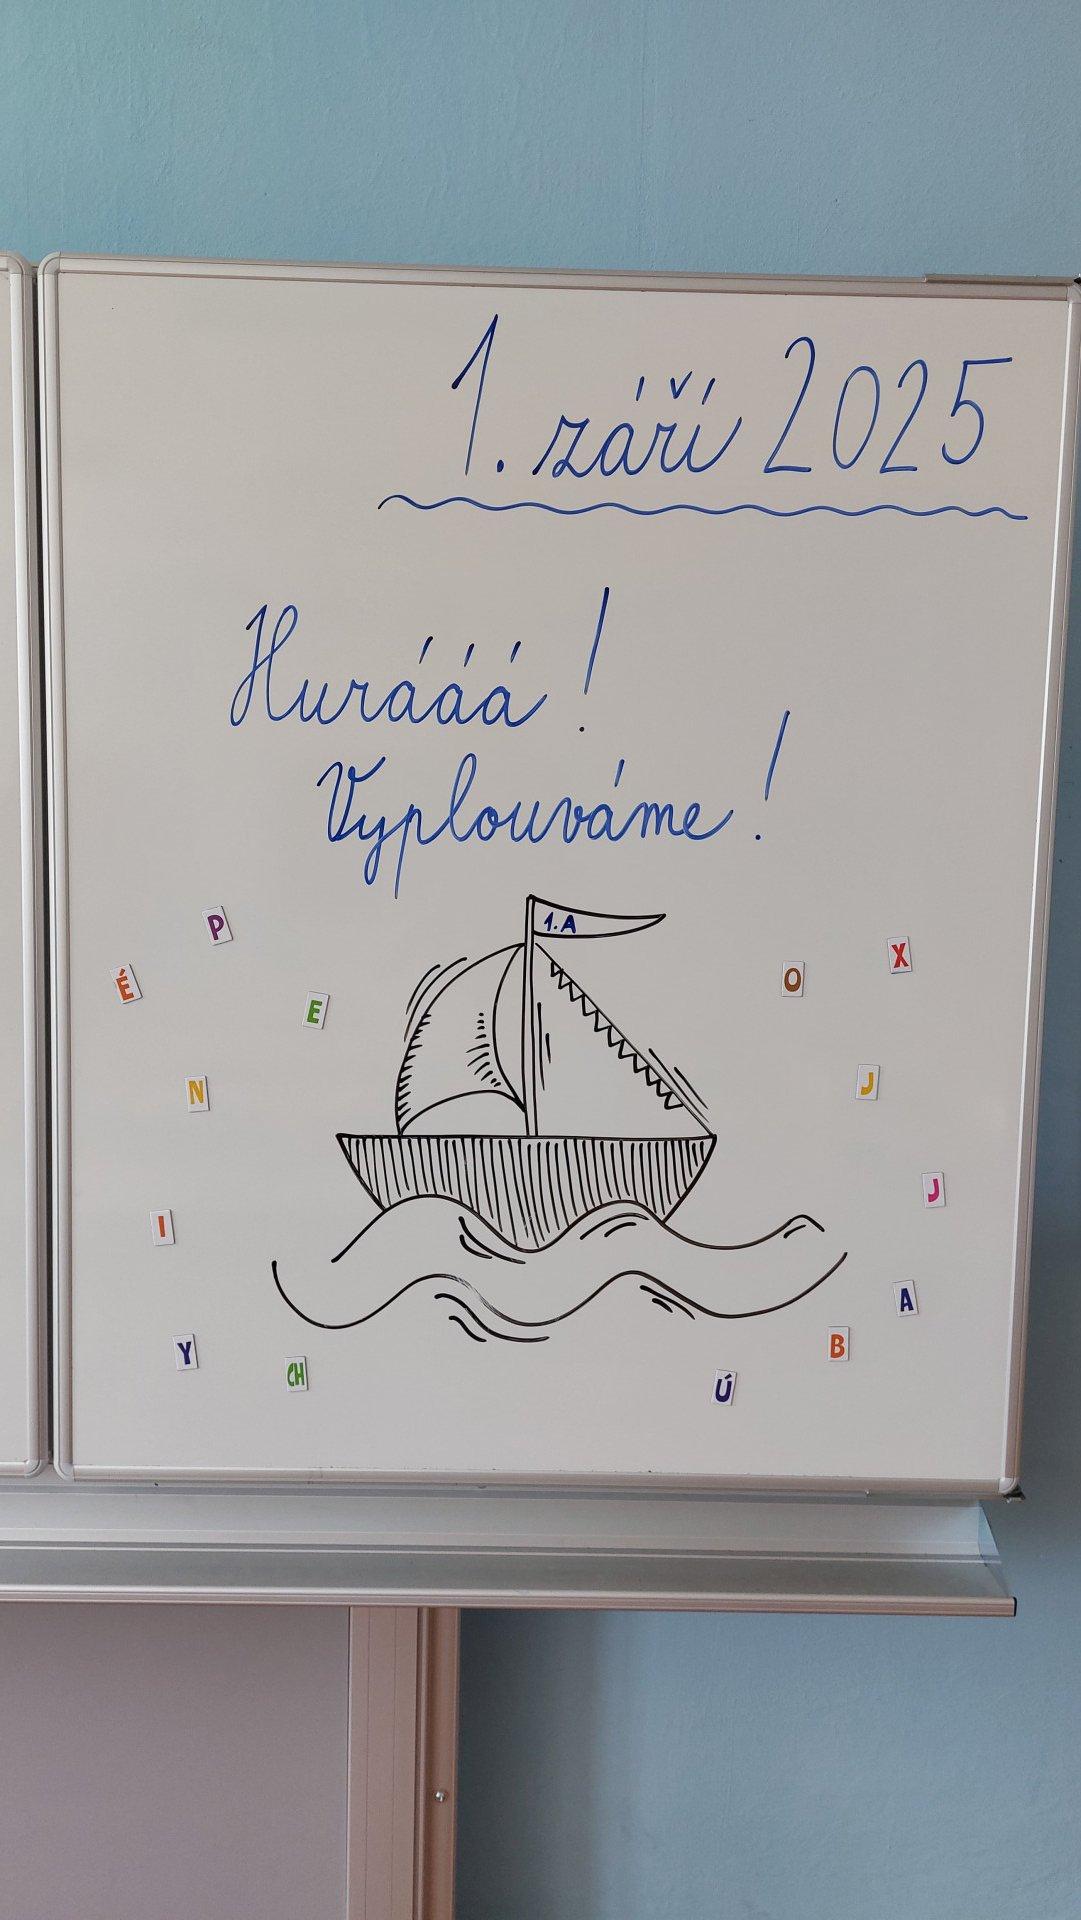 1. září 2025
Hurááá!
Vyplouváme!
1.A
P
É
E
N
I
Y
CH
O
X
J
J
A
B
Ú